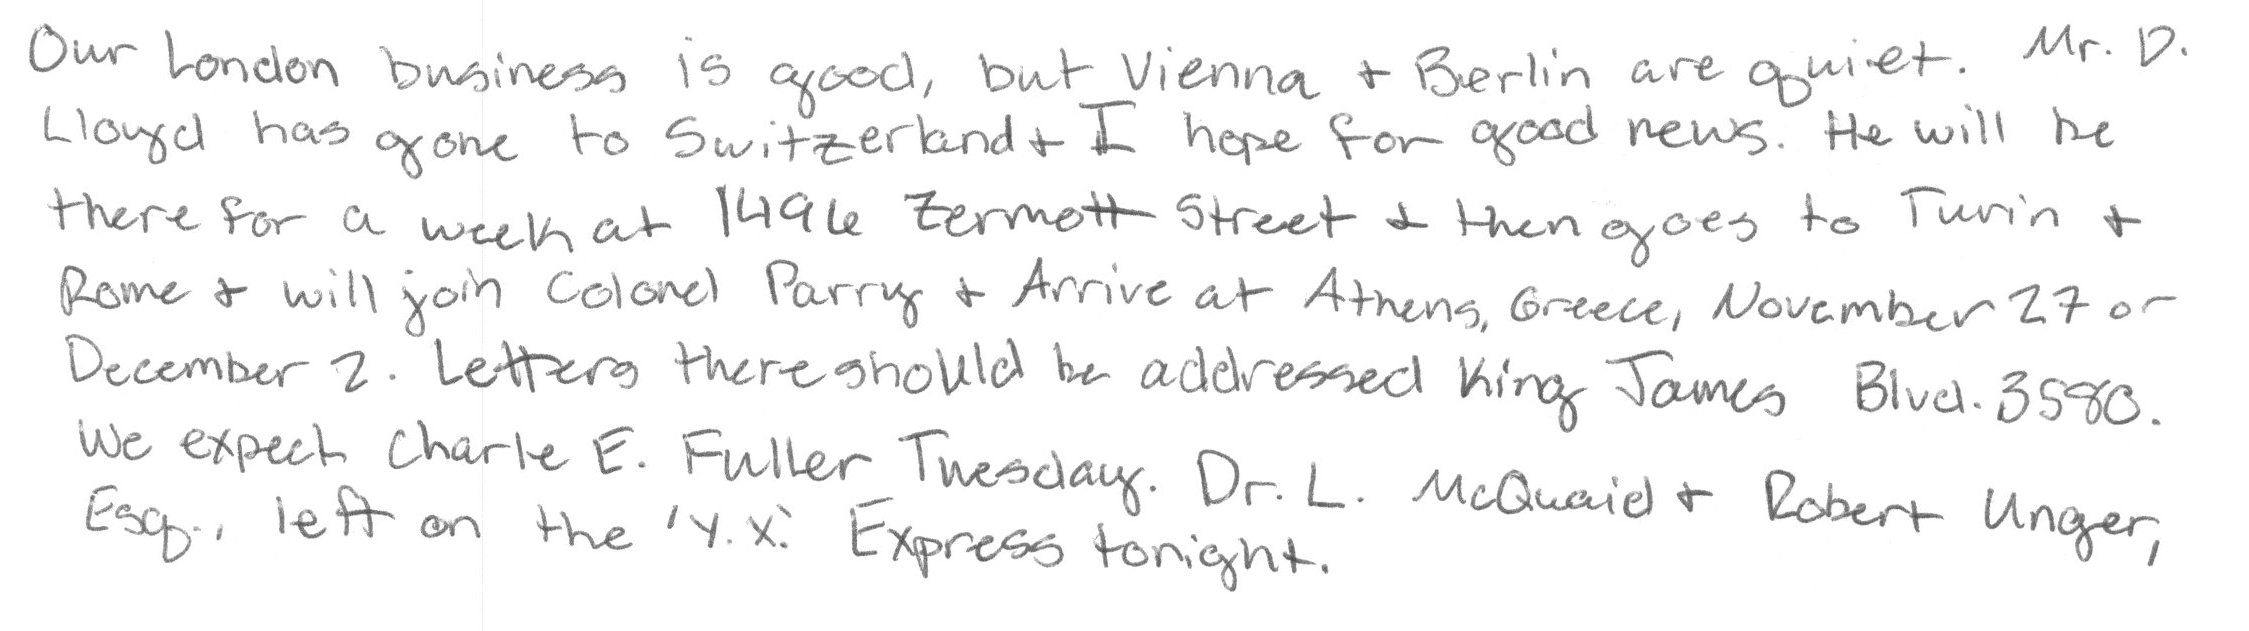 Our London business is good, but Vienna + Berlin are quiet. Mr. D.
Lloyd has gone to Switzerland + I hope for good news. He will be
there for a week at 1496 Zermott Street + then goes to Turin +
Rome + will join Colonel Parry + Arrive at Athens, Greece, November 27 or
December 2. Letters there should be addressed King James Blvd. 3580.
We expect Charle E. Fuller Tuesday. Dr. L. McQuaid + Robert Unger,
Esq., left on the 'Y.X.' Express tonight.